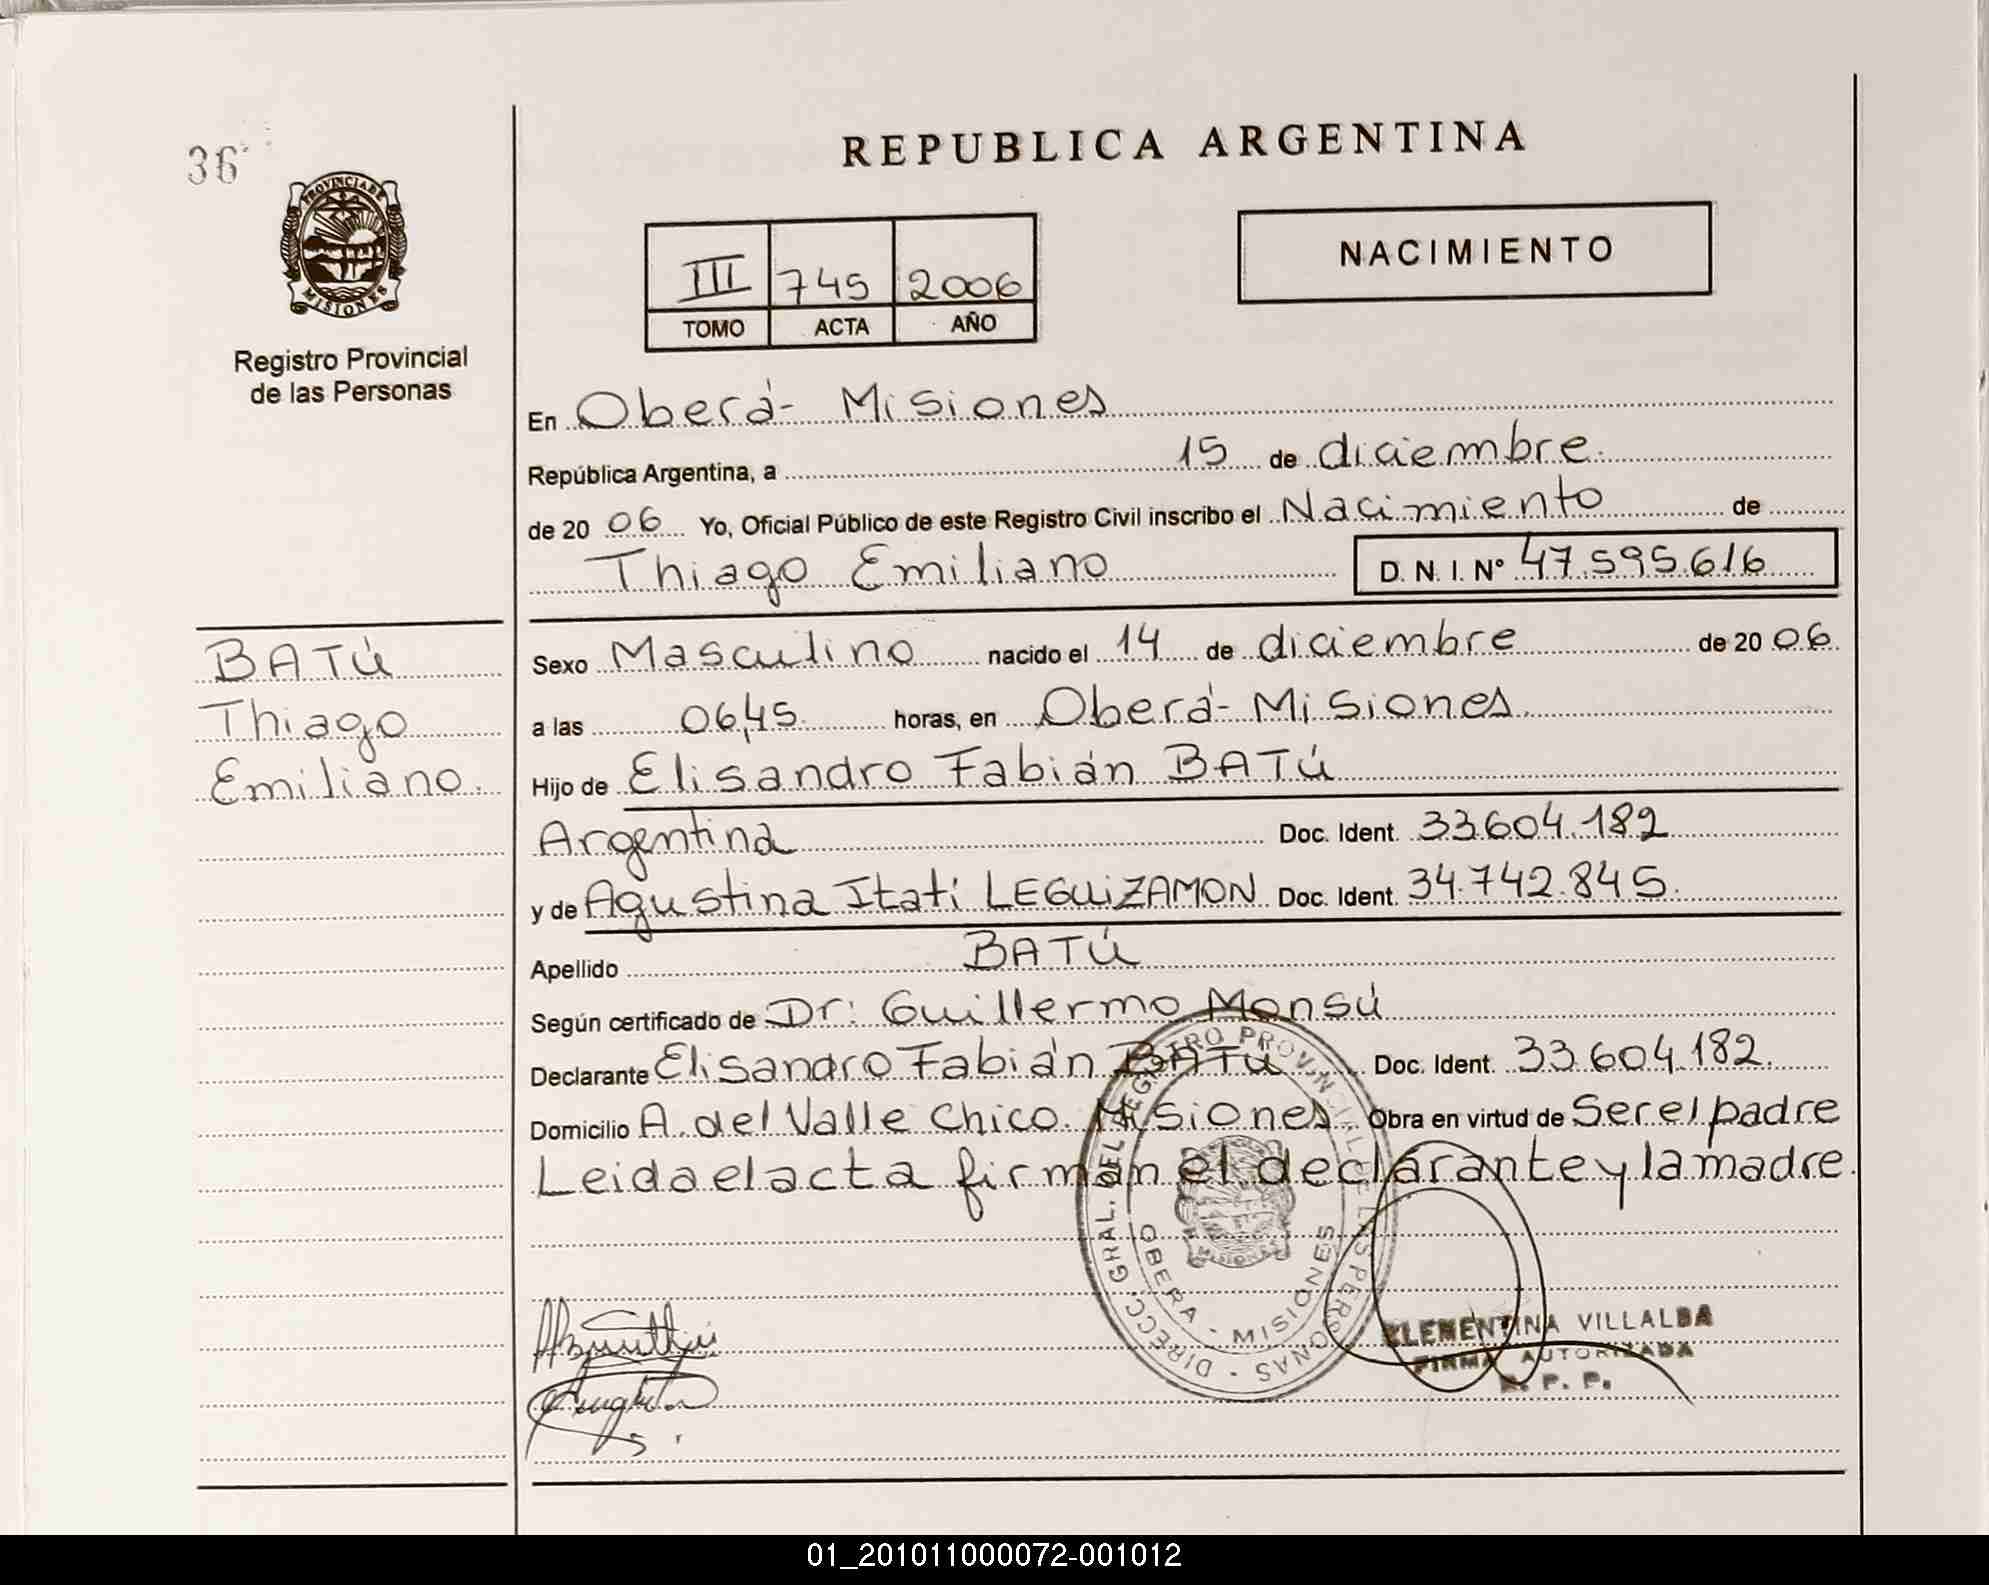 36
PROVINCIA DE
MISIONES
Registro Provincial
de las Personas
BATÚ
Thiago
Emiliano.
REPUBLICA ARGENTINA
III 745 2006
TOMO ACTA AÑO
NACIMIENTO
En Oberá- Misiones
República Argentina, a 15 de diciembre.
de 20 06 Yo, Oficial Público de este Registro Civil inscribo el Nacimiento de
Thiago Emiliano D. N. I. Nº 47.595.616
Sexo Masculino nacido el 14 de diciembre de 20 06.
a las 06,45. horas, en Oberá- Misiones.
Hijo de Elisandro Fabián BATÚ
Argentina Doc. Ident. 33.604.182
y de Agustina Itatí LEGUIZAMON Doc. Ident. 34.742.845.
Apellido BATÚ
Según certificado de Dr: Guillermo Monsú
Declarante Elisandro Fabián BATÚ Doc. Ident. 33.604.182.
Domicilio A. del Valle Chico. Misiones Obra en virtud de Ser el padre
Leida el acta firman el declarante y la madre.
DIRECC. GRAL. DEL REGISTRO PROVINCIAL DE LAS PERSONAS
OBERA - MISIONES
MISIONES
CLEMENTINA VILLALBA
FIRMA AUTORIZADA
R. P. P.
01_201011000072-001012